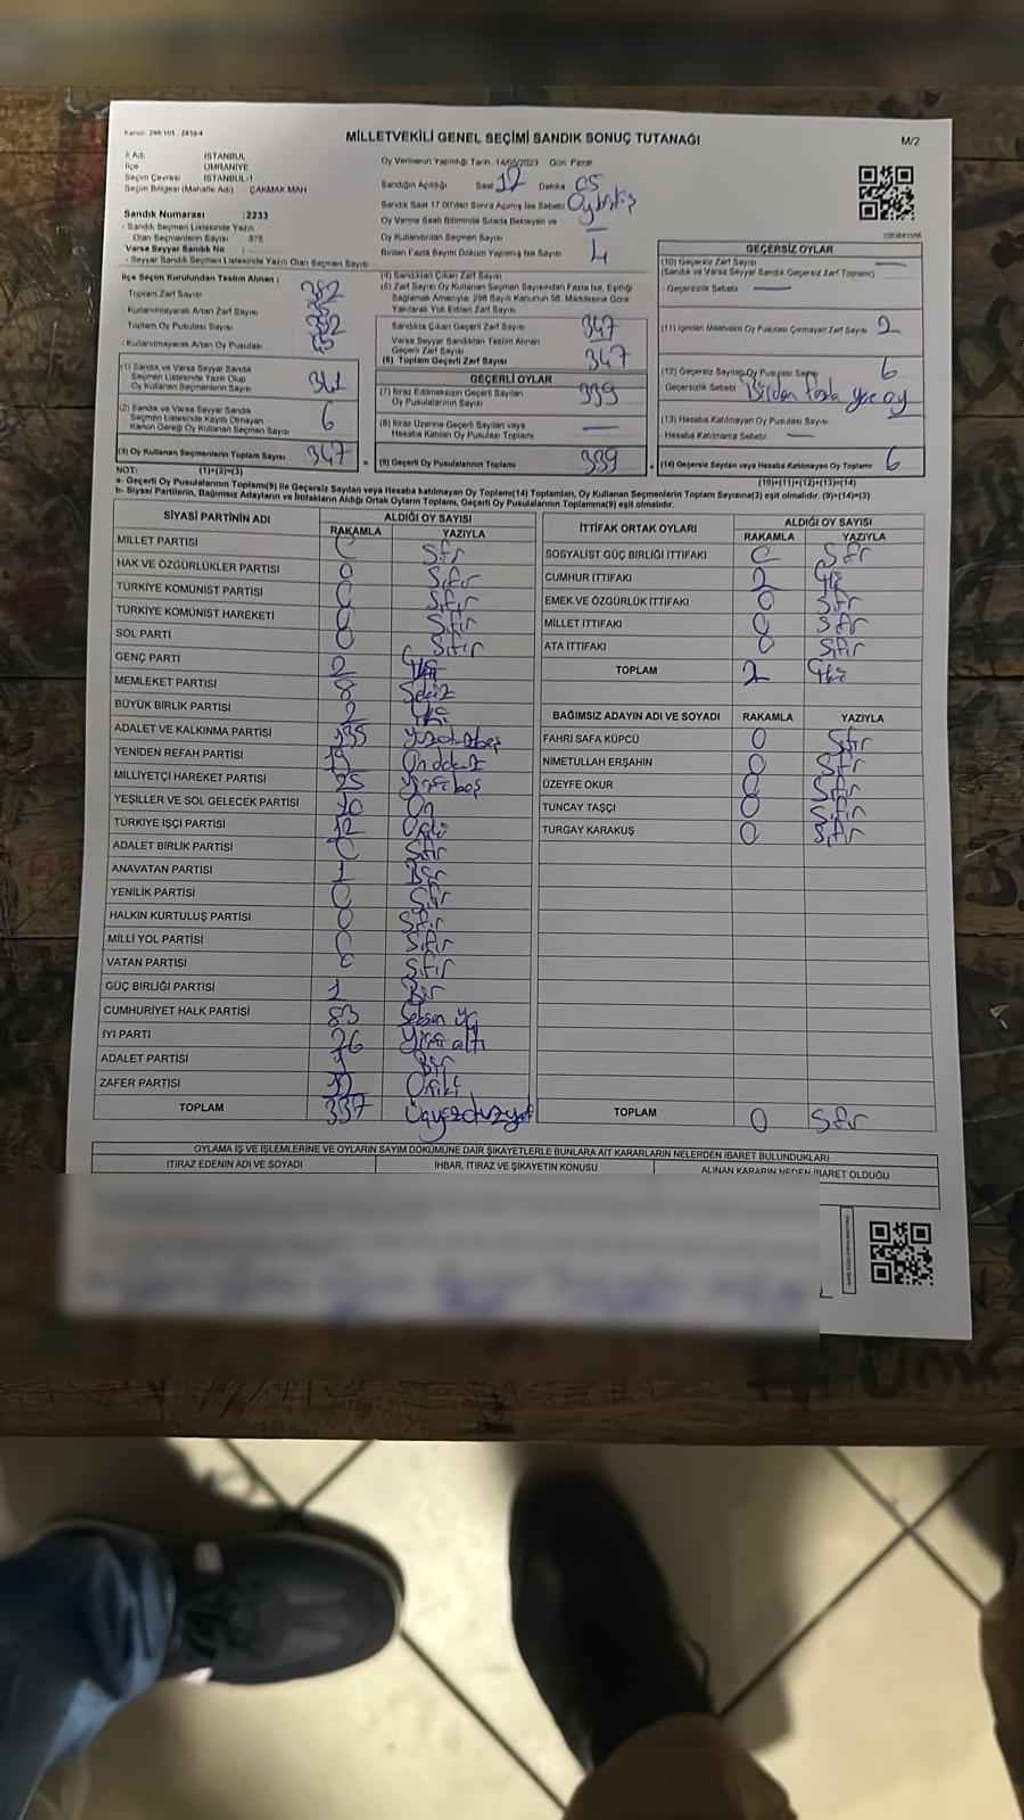 MİLLETVEKİLİ GENEL SEÇİMİ SANDIK SONUÇ TUTANAĞI
M/2
İl Adı: İSTANBUL
İlçe ÜMRANİYE
Seçim Çevresi İSTANBUL-1
Seçim Bölgesi (Mahalle Adı) ÇAKMAK MAH
Sandık Numarası :2233
- Sandık Seçmen Listesinde Yazılı
Olan Seçmenlerin Sayısı 378
Varsa Seyyar Sandık No
- Seyyar Sandık Seçmen Listesinde Yazılı Olan Seçmen Sayısı
Oy Vermenin Yapıldığı Tarih 14/05/2023 Gün Pazar
Sandığın Açıldığı Saat 17 Dakika 05
Sandık Saat 17.00'den Sonra Açılmış İse Sebebi
Oy Verme Saati Bitiminde Sırada Bekleyen ve
Oy Kullandırılan Seçmen Sayısı
Birden Fazla Sayım Döküm Yapılmış İse Sayısı
İlçe Seçim Kurulundan Teslim Alınan :
Toplam Zarf Sayısı
Kullanılmayarak Artan Zarf Sayısı
Toplam Oy Pusulası Sayısı
- Kullanılmayarak Artan Oy Pusulası
(1) Sandık ve Varsa Seyyar Sandık
Seçmen Listesinde Yazılı Olup
Oy Kullanan Seçmenlerin Sayısı 341
(2) Sandık ve Varsa Seyyar Sandık
Seçmen Listesinde Kayıtlı Olmayan
Kanun Gereği Oy Kullanan Seçmen Sayısı 6
(3) Oy Kullanan Seçmenlerin Toplam Sayısı 347
(1)+(2)=(3)
(4) Sandıktan Çıkan Zarf Sayısı
(5) Zarf Sayısı Oy Kullanan Seçmen Sayısından Fazla İse, Eşitliği
Sağlamak Amacıyla, 298 Sayılı Kanunun 98. Maddesine Göre
Yakılarak Yok Edilen Zarf Sayısı
Sandıkta Çıkan Geçerli Zarf Sayısı 347
Varsa Seyyar Sandıktan Teslim Alınan
Geçerli Zarf Sayısı
(6) Toplam Geçerli Zarf Sayısı 347
GEÇERLİ OYLAR
(7) İtiraz Edilmeksizin Geçerli Sayılan
Oy Pusulalarının Sayısı 339
(8) İtiraz Üzerine Geçerli Sayılan veya
Hesaba Katılan Oy Pusulaları Toplamı
(9) Geçerli Oy Pusulalarının Toplamı 339
GEÇERSİZ OYLAR
(10) Geçersiz Zarf Sayısı
(Sandık ve Varsa Seyyar Sandık Geçersiz Zarf Toplamı)
Geçersizlik Sebebi
(11) İçinden Milletvekili Oy Pusulası Çıkmayan Zarf Sayısı 2
(12) Geçersiz Sayılan Oy Pusulası Sayısı 6
Geçersizlik Sebebi Birden fazla yere oy
(13) Hesaba Katılmayan Oy Pusulası Sayısı
Hesaba Katılmama Sebebi
(14) Geçersiz Sayılan veya Hesaba Katılmayan Oy Toplamı 6
(10)+(11)+(12)+(13)=(14)
NOT:
a- Geçerli Oy Pusulalarının Toplamı(9) ile Geçersiz Sayılan veya Hesaba katılmayan Oy Toplamı(14) Toplamları, Oy Kullanan Seçmenlerin Toplam Sayısına(3) eşit olmalıdır. (9)+(14)=(3)
b- Siyasi Partilerin, Bağımsız Adayların ve İttifakların Aldığı Ortak Oyların Toplamı, Geçerli Oy Pusulalarının Toplamına(9) eşit olmalıdır.
SİYASİ PARTİNİN ADI ALDIĞI OY SAYISI
RAKAMLA YAZIYLA
MİLLET PARTİSİ 0 Sıfır
HAK VE ÖZGÜRLÜKLER PARTİSİ 0 Sıfır
TÜRKİYE KOMÜNİST PARTİSİ 0 Sıfır
TÜRKİYE KOMÜNİST HAREKETİ 0 Sıfır
SOL PARTİ 0 Sıfır
GENÇ PARTİ 2 İki
MEMLEKET PARTİSİ 8 Sekiz
BÜYÜK BİRLİK PARTİSİ 2 İki
ADALET VE KALKINMA PARTİSİ 135 Yüzotuzbeş
YENİDEN REFAH PARTİSİ
MİLLİYETÇİ HAREKET PARTİSİ 25 Yirmibeş
YEŞİLLER VE SOL GELECEK PARTİSİ 10 On
TÜRKİYE İŞÇİ PARTİSİ 12 Oniki
ADALET BİRLİK PARTİSİ 0 Sıfır
ANAVATAN PARTİSİ 1 Bir
YENİLİK PARTİSİ 0 Sıfır
HALKIN KURTULUŞ PARTİSİ 0 Sıfır
MİLLİ YOL PARTİSİ 0 Sıfır
VATAN PARTİSİ 0 Sıfır
GÜÇ BİRLİĞİ PARTİSİ 1 Bir
CUMHURİYET HALK PARTİSİ 83 Seksen üç
İYİ PARTİ 26 Yirmi altı
ADALET PARTİSİ 1 Bir
ZAFER PARTİSİ 12 Oniki
TOPLAM 337 Üçyüzotuzyedi
İTTİFAK ORTAK OYLARI ALDIĞI OY SAYISI
RAKAMLA YAZIYLA
SOSYALİST GÜÇ BİRLİĞİ İTTİFAKI 0 Sıfır
CUMHUR İTTİFAKI 2 İki
EMEK VE ÖZGÜRLÜK İTTİFAKI 0 Sıfır
MİLLET İTTİFAKI 0 Sıfır
ATA İTTİFAKI 0 Sıfır
TOPLAM 2 İki
BAĞIMSIZ ADAYIN ADI VE SOYADI RAKAMLA YAZIYLA
FAHRİ SAFA KÜPCÜ 0 Sıfır
NİMETULLAH ERŞAHİN 0 Sıfır
ÜZEYFE OKUR 0 Sıfır
TUNCAY TAŞÇI 0 Sıfır
TURGAY KARAKUŞ 0 Sıfır
TOPLAM 0 Sıfır
OYLAMA İŞ VE İŞLEMLERİNE VE OYLARIN SAYIM DÖKÜMÜNE DAİR ŞİKAYETLERLE BUNLARA AİT KARARLARIN NELERDEN İBARET BULUNDUKLARI
İTİRAZ EDENİN ADI VE SOYADI İHBAR, İTİRAZ VE ŞİKAYETİN KONUSU ALINAN KARARIN NEDEN İBARET OLDUĞU